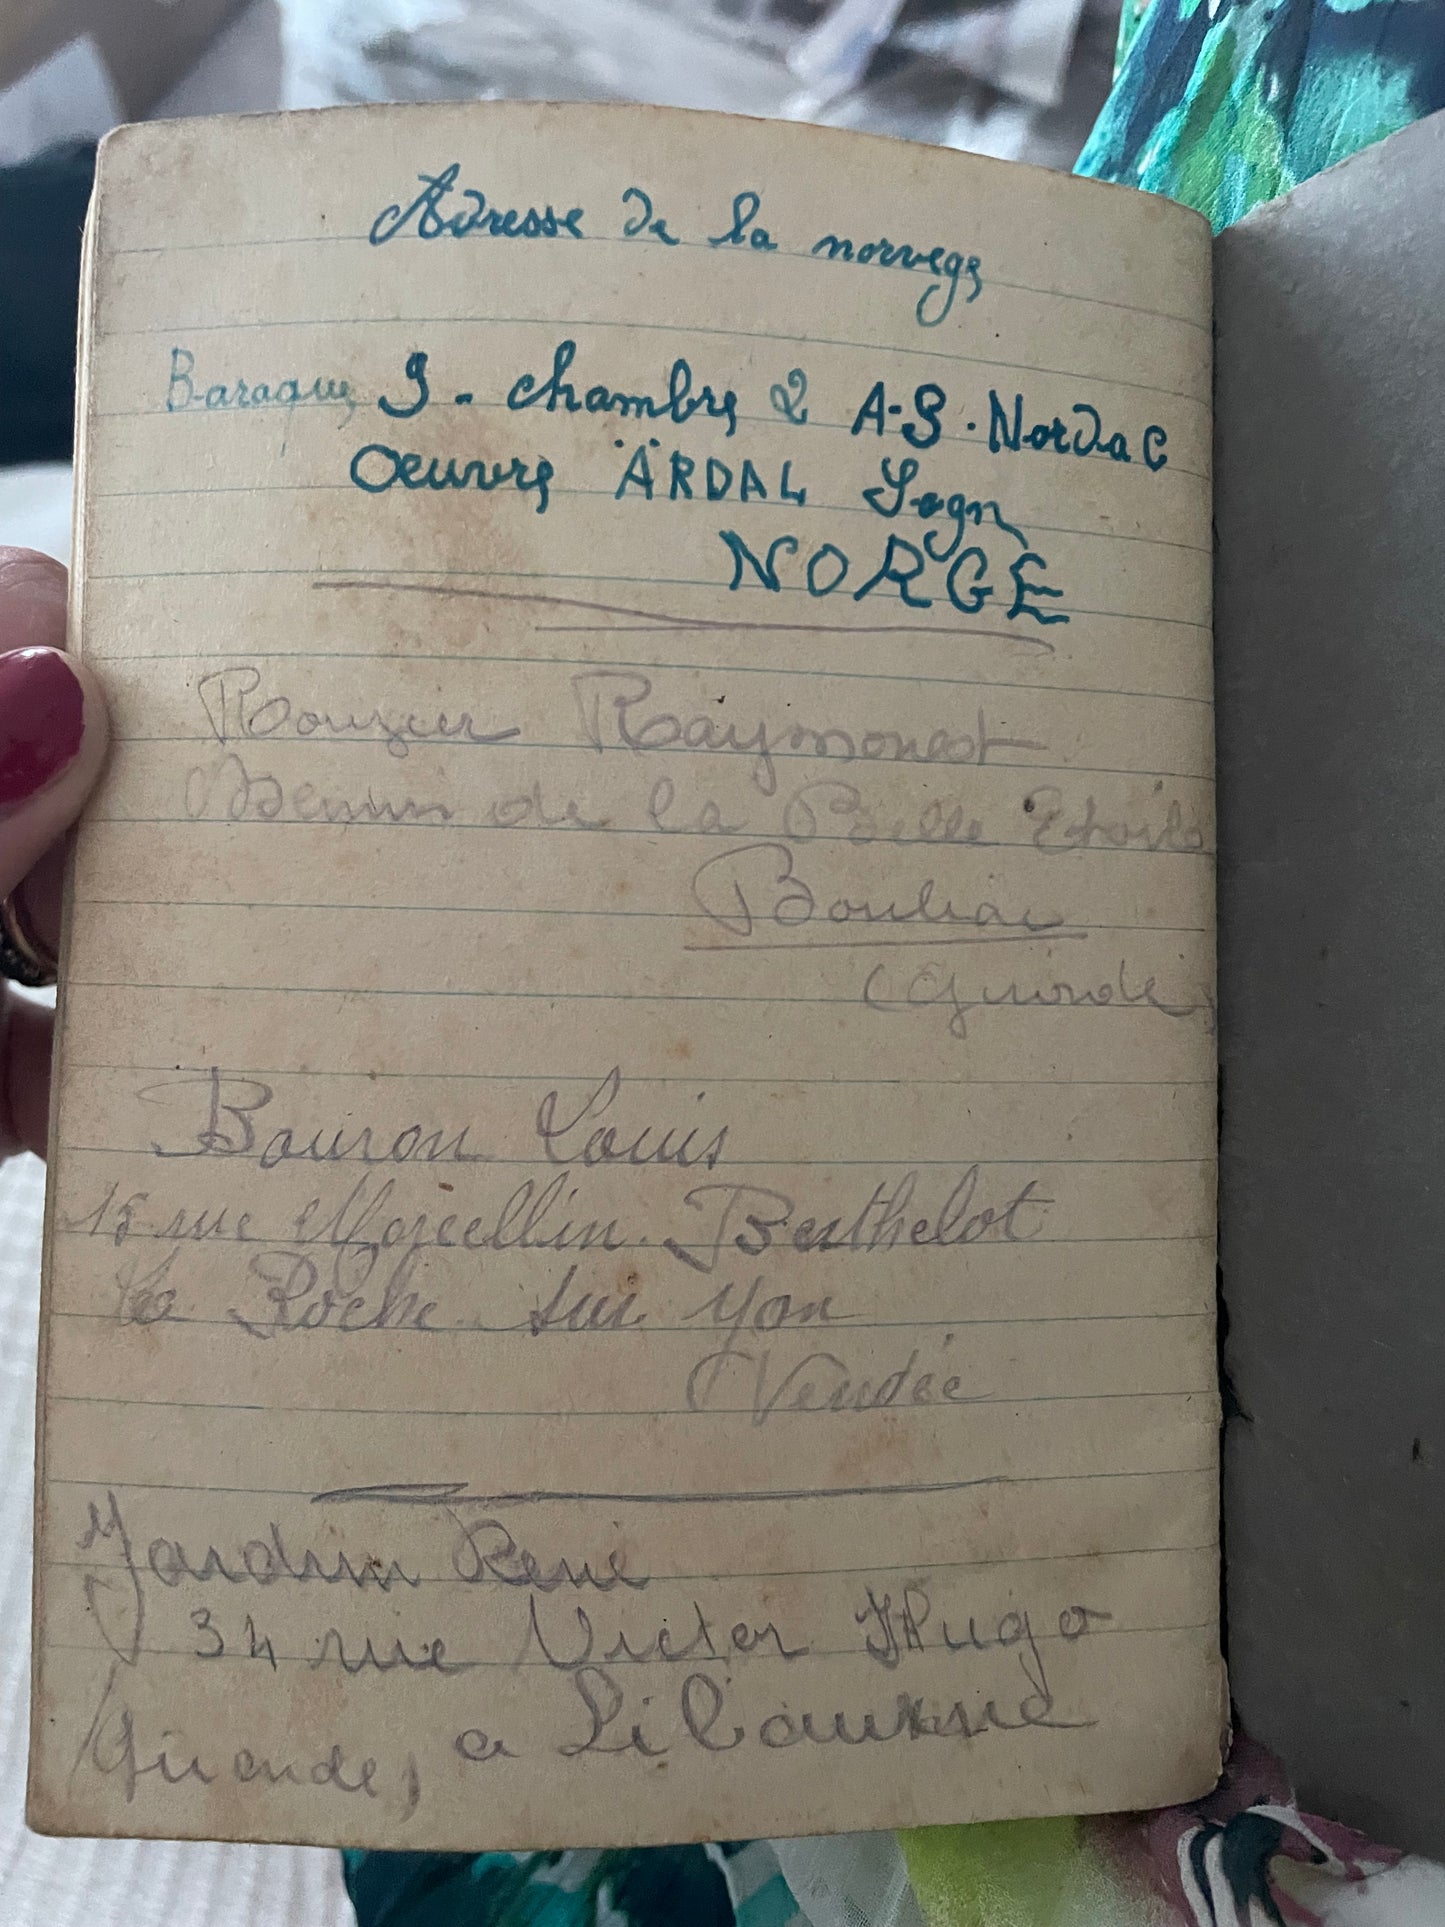 Adresse de la norvege
Baraque 9 - chambre 2 A-S. Nordac
Oeuvre ÄRDAL Sogn
NORGE
Rouzier Raymond
de la Belle Etoile
Bouliac
(Gironde)
Bouron Louis
15 rue Marcellin Berthelot
La Roche sur Yon
Vendée
Jardin René
34 rue Victor Hugo
Gironde, a Libourne